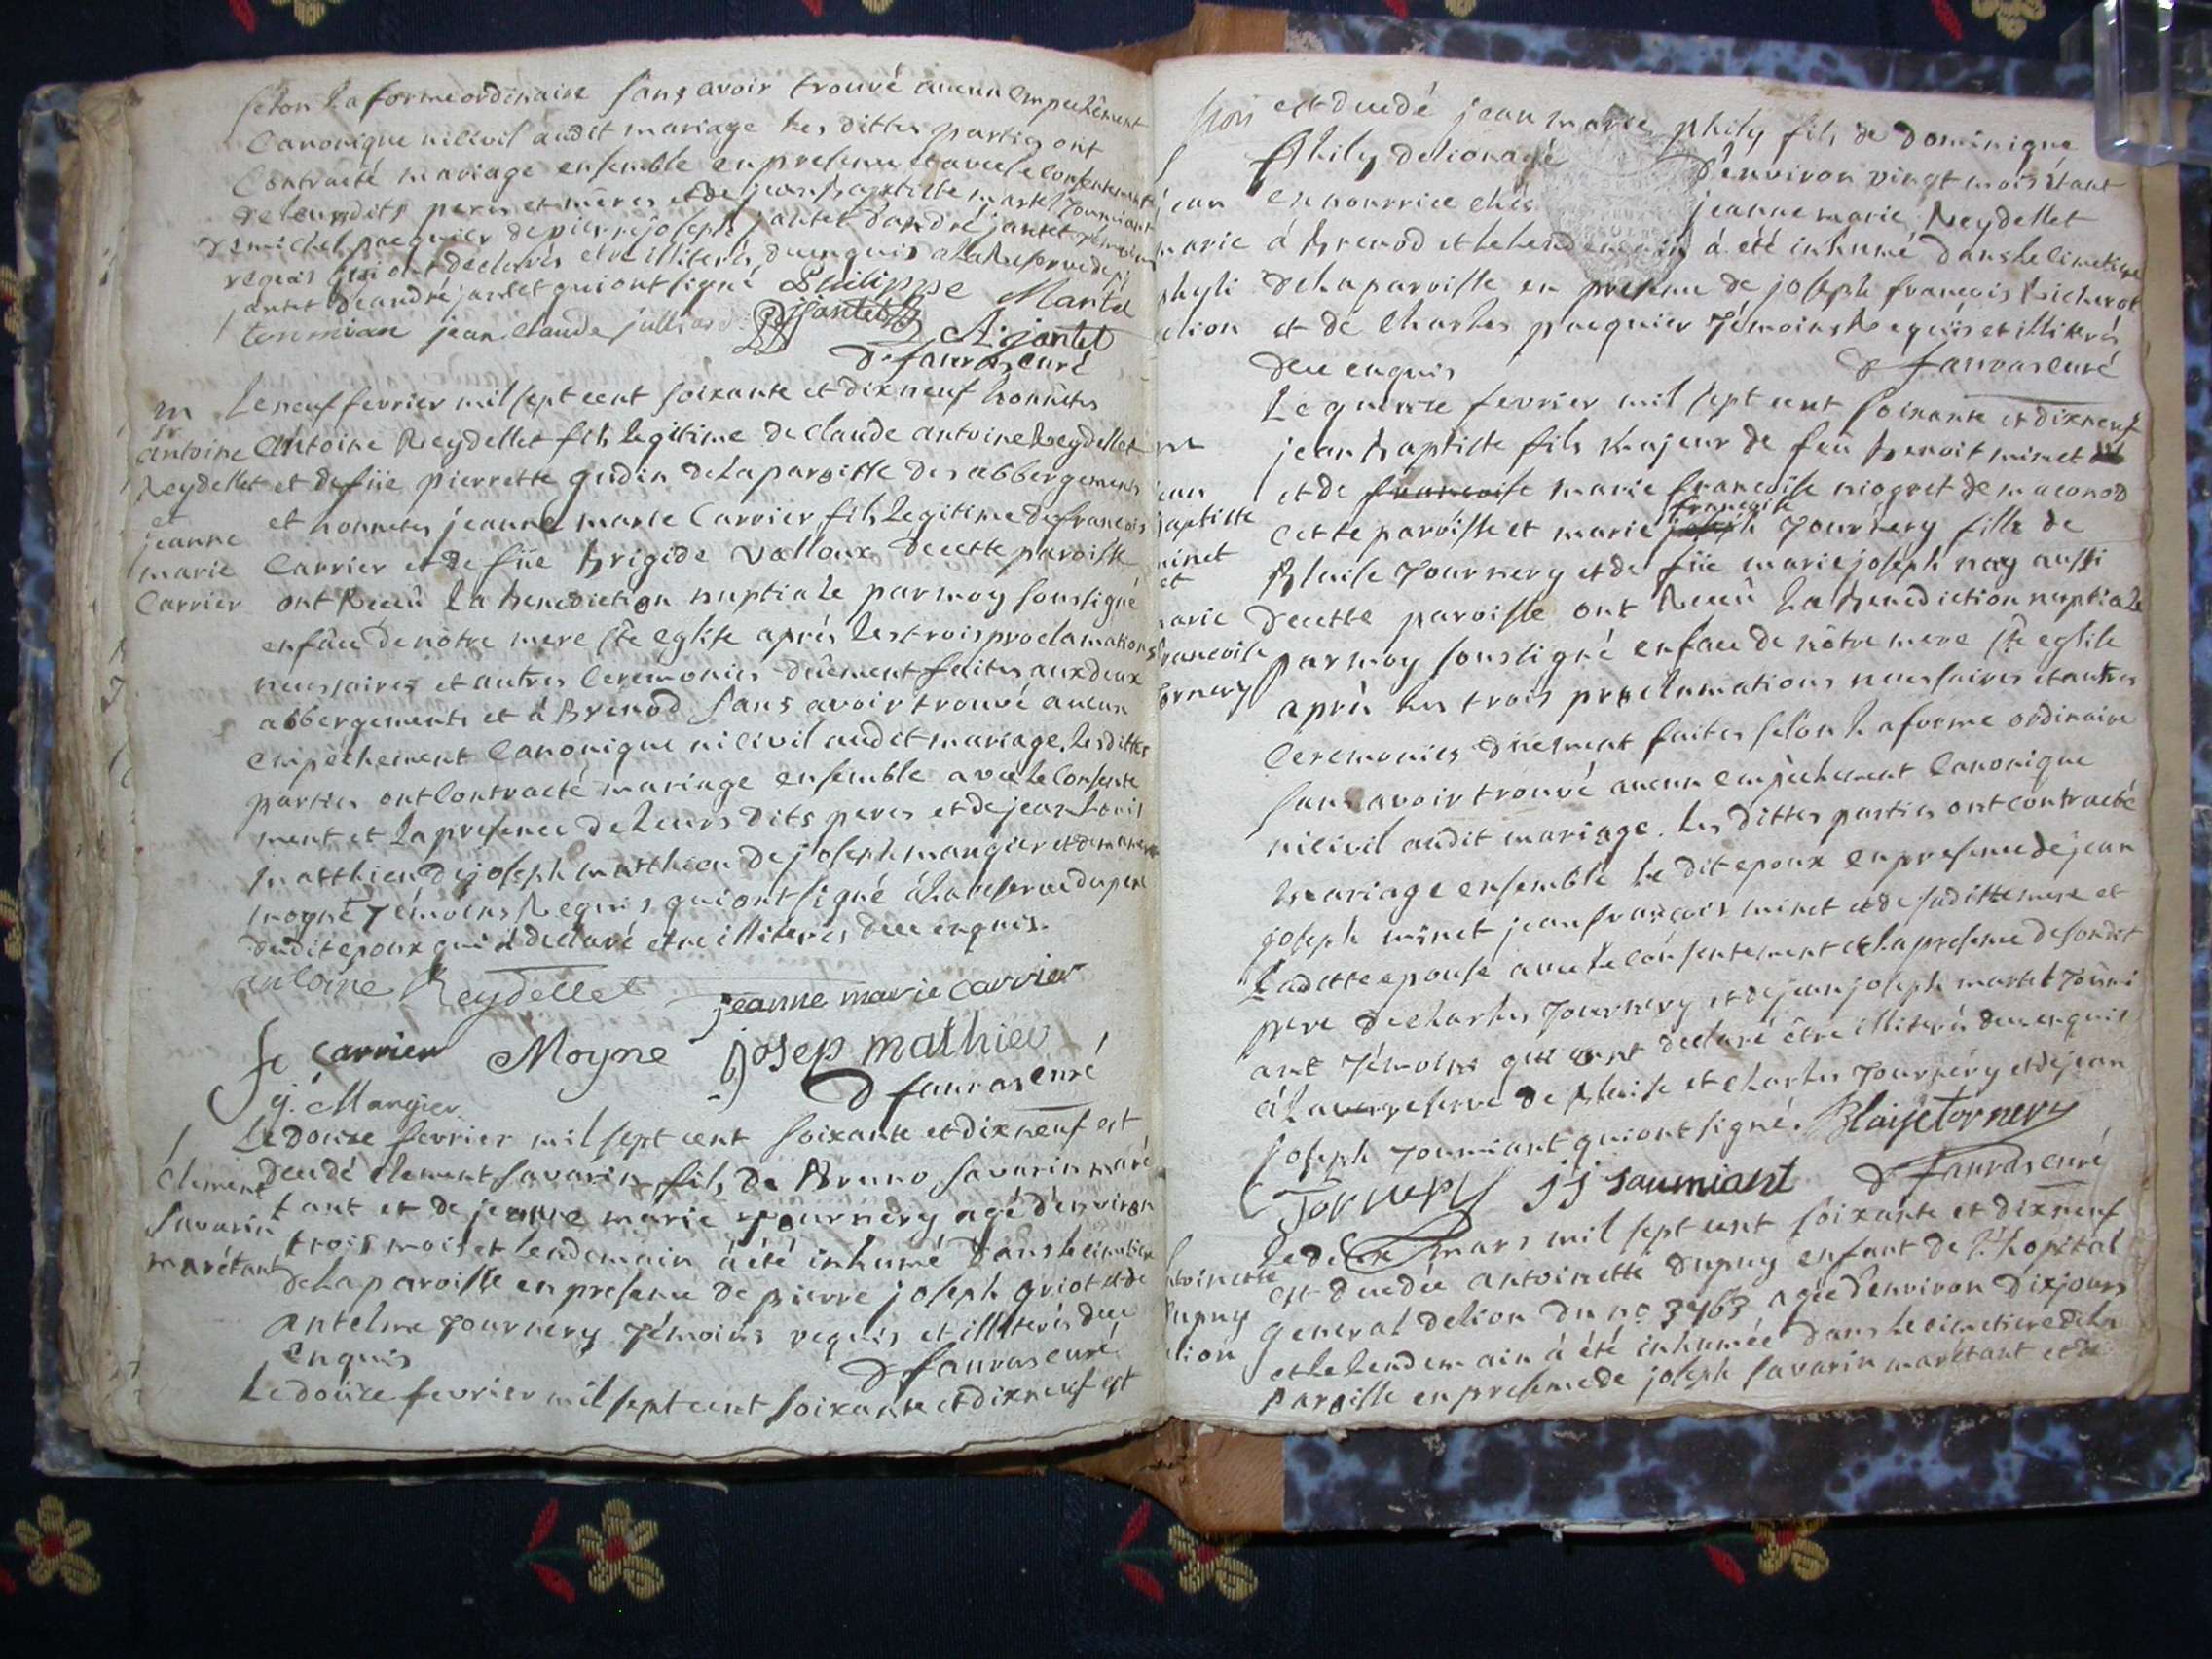 selon la forme ordinaire sans avoir trouvé aucun empechement
Canonique ni civil audit mariage les dittes partis ont
Contracté mariage ensemble en presence et avec le consentement
de leursdits peres et mères et de jean baptiste martel tourniant
de michel pacquier de pierre joseph jantet d'andré jantet témoins
requis qui ont declarés etre illiterés, deuenquis a la reserve de
jantet de andré jantet qui ont signé Philippe Martel
tourmian jean Claude julliard pjjantet A: jantet
D. favras curé
m
sr
antoine
Reydellet
et
jeanne
marie
Carrier
Le neuf fevrier mil sept cent soixante et dix neuf honnêtes
Antoine Reydellet fils legitime de claude antoine Reydellet
et de füe pierrette gudin de la paroisse des abbergements
et honnetes jeanne marie Carrier fils legitime de francois
Carrier et de füe brigide valloux de cette paroisse
ont Receû la benediction nuptiale par moy soussigné
enface de nôtre mere ste eglise après les trois proclamations
necessaires et autres Ceremonies dûement faites aux deux
abbergements et à Brenod sans avoir trouvé aucun
empêchement Canonique ni civil audit mariage, les dittes
parties ont Contracté mariage ensemble avec le Consente
ment et la presence de leurs dits peres et de jean louis
matthieu de joseph matthieu de joseph mangier et de
moyne témoins Requis qui ont signé à la reserve du pere
dudit epoux qui a declaré etre illiterés deue enquis.
antoine Reydellet jeanne marie carrier
fe carrier Moyne josep mathieu
j. Mangier D favras curé
Clement
Savarin
marétant
Le douze fevrier mil sept cent soixante et dix neuf est
decedé clement savarin fils de Bruno savarin maré
tant et de jeanne marie tournery agé d'environ
trois mois et lendemain à été inhumé dans le cimetiere
de la paroisse en presence de pierre joseph griot et de
antelme tournery témoins requis et illiterés deue
enquis D favras curé
Le douze fevrier mil sept cent soixante et dix neuf est
jean
marie
phyli
lion
est decedé jean marie phily fils de dominique
phily de lion agé d'environ vingt mois étant
en nourrice chés jeanne marie Reydellet
à brenod et le lendemain à été inhumé dans le cimetiere
de la paroisse en presence de joseph francois
et de Charles pacquier témoins Requis et illitterés
deue enquis D favras curé
m
jean
baptiste
minet
et
marie
francoise
tornery
Le quinze fevrier mil sept cent soixante et dix neuf
jean baptiste fils majeur de feu benoit minet
et de francoise marie francoise niogret de maconod
cette paroisse et marie joseph francoise Tournery fille de
Blaise Tournery et de füe marie joseph nay aussi
de cette paroisse ont Receû la benediction nuptiale
par moy soussigné enface de nôtre mere ste eglise
après les trois proclamations necessaires et autres
Ceremonies düement faites selon la forme ordinaire
sans avoir trouvé aucun empêchement Canonique
ni civil audit mariage. les dittes parties ont contracté
mariage ensemble le dit epoux en presence de jean
joseph minet jean francois minet et de saditte mere et
Laditte epouse avec le consentement et la presence de sondit
pere de charles Tournery et de jean joseph martel Tourni
ant témoins qui ont declaré être illiterés deue enquis
à la reserve de Blaise et Charles Tournery et de jean
joseph Tourniant qui ont signé. Blaise tornery
Tornery jj toumiant D favras curé
antoinette
Dupuy
lion
Le deux mars mil sept cent soixante et dix neuf
est decedée antoinette Dupuy enfant de l'hopital
general de lion du no 3763 agée d'environ dix jours
et le lendemain à été inhumée dans le cimetiere de la
paroisse en presence de joseph savarin marétant et de